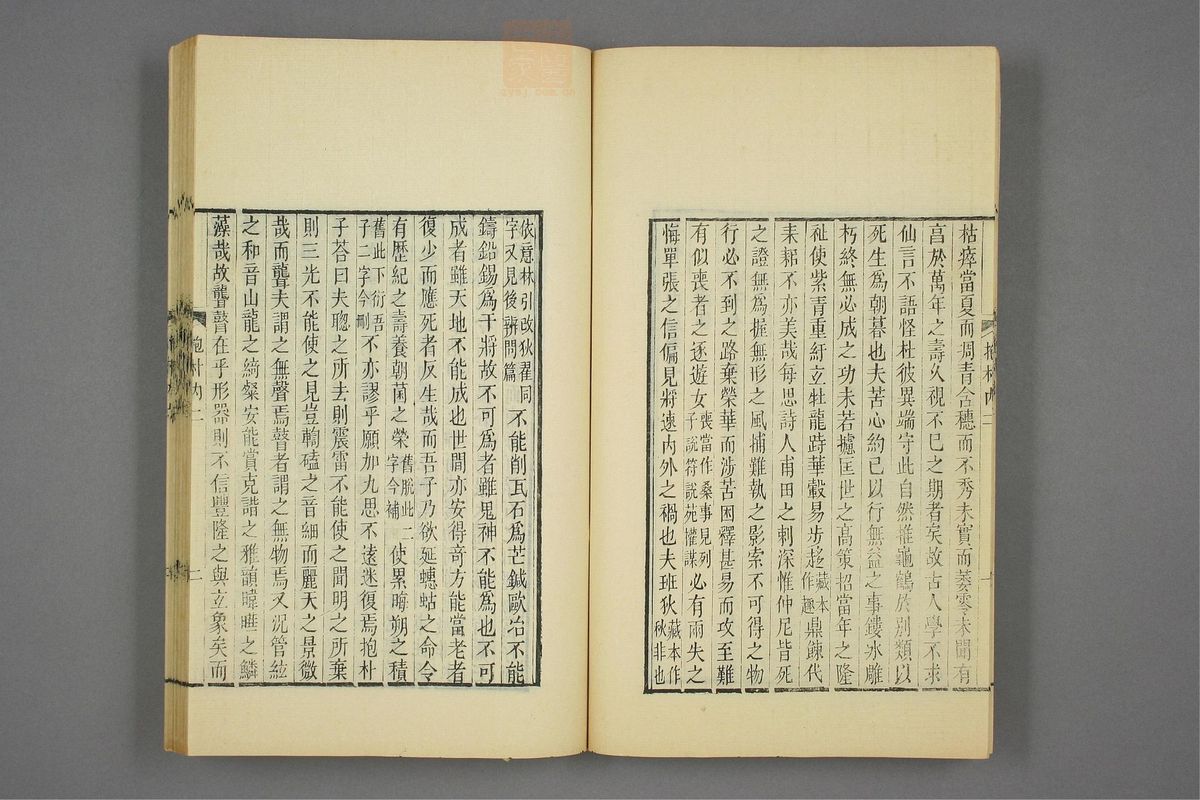 枯瘁當夏而凋青含穗而不秀未實而萎零未聞有
享於萬年之壽久視不已之期者矣故古人學不求
仙言不語怪杜彼異端守此自然推龜鶴於別類以
死生爲朝暮也夫苦心約已以行無益之事鏤冰雕
朽終無必成之功未若攄匡世之高策招當年之隆
祉使紫青重紆玄牡龍跱華轂易步趍藏本作趣鼎餗代
耒耜不亦美哉每思詩人甫田之刺深惟仲尼皆死
之證無爲握無形之風捕難執之影索不可得之物
行必不到之路棄榮華而涉苦困釋甚易而攻至難
有似喪者之逐遊女喪當作桑事見列子說符說苑權謀必有兩失之
悔單張之信偏見將速內外之禍也夫班狄藏本作秋非也
抱朴內二
一
依意林引改狄翟同字又見後辨問篇不能削瓦石爲芒鍼歐冶不能
鑄鉛錫爲干將故不可爲者雖鬼神不能爲也不可
成者雖天地不能成也世間亦安得奇方能當老者
復少而應死者反生哉而吾子乃欲延蟪蛄之命令
有歷紀之壽養朝菌之榮舊脫此二字今補使累晦朔之積
舊此下衍吾子二字今刪不亦謬乎願加九思不遠迷復焉抱朴
子荅曰夫聦之所去則震雷不能使之聞明之所棄
則三光不能使之見豈輷磕之音細而麗天之景微
哉而聾夫謂之無聲焉瞽者謂之無物焉又況管絃
之和音山龍之綺粲安能賞克諧之雅韻暐曄之鱗
藻哉故聾瞽在乎形器則不信豐隆之與玄象矣而
抱朴內二
二